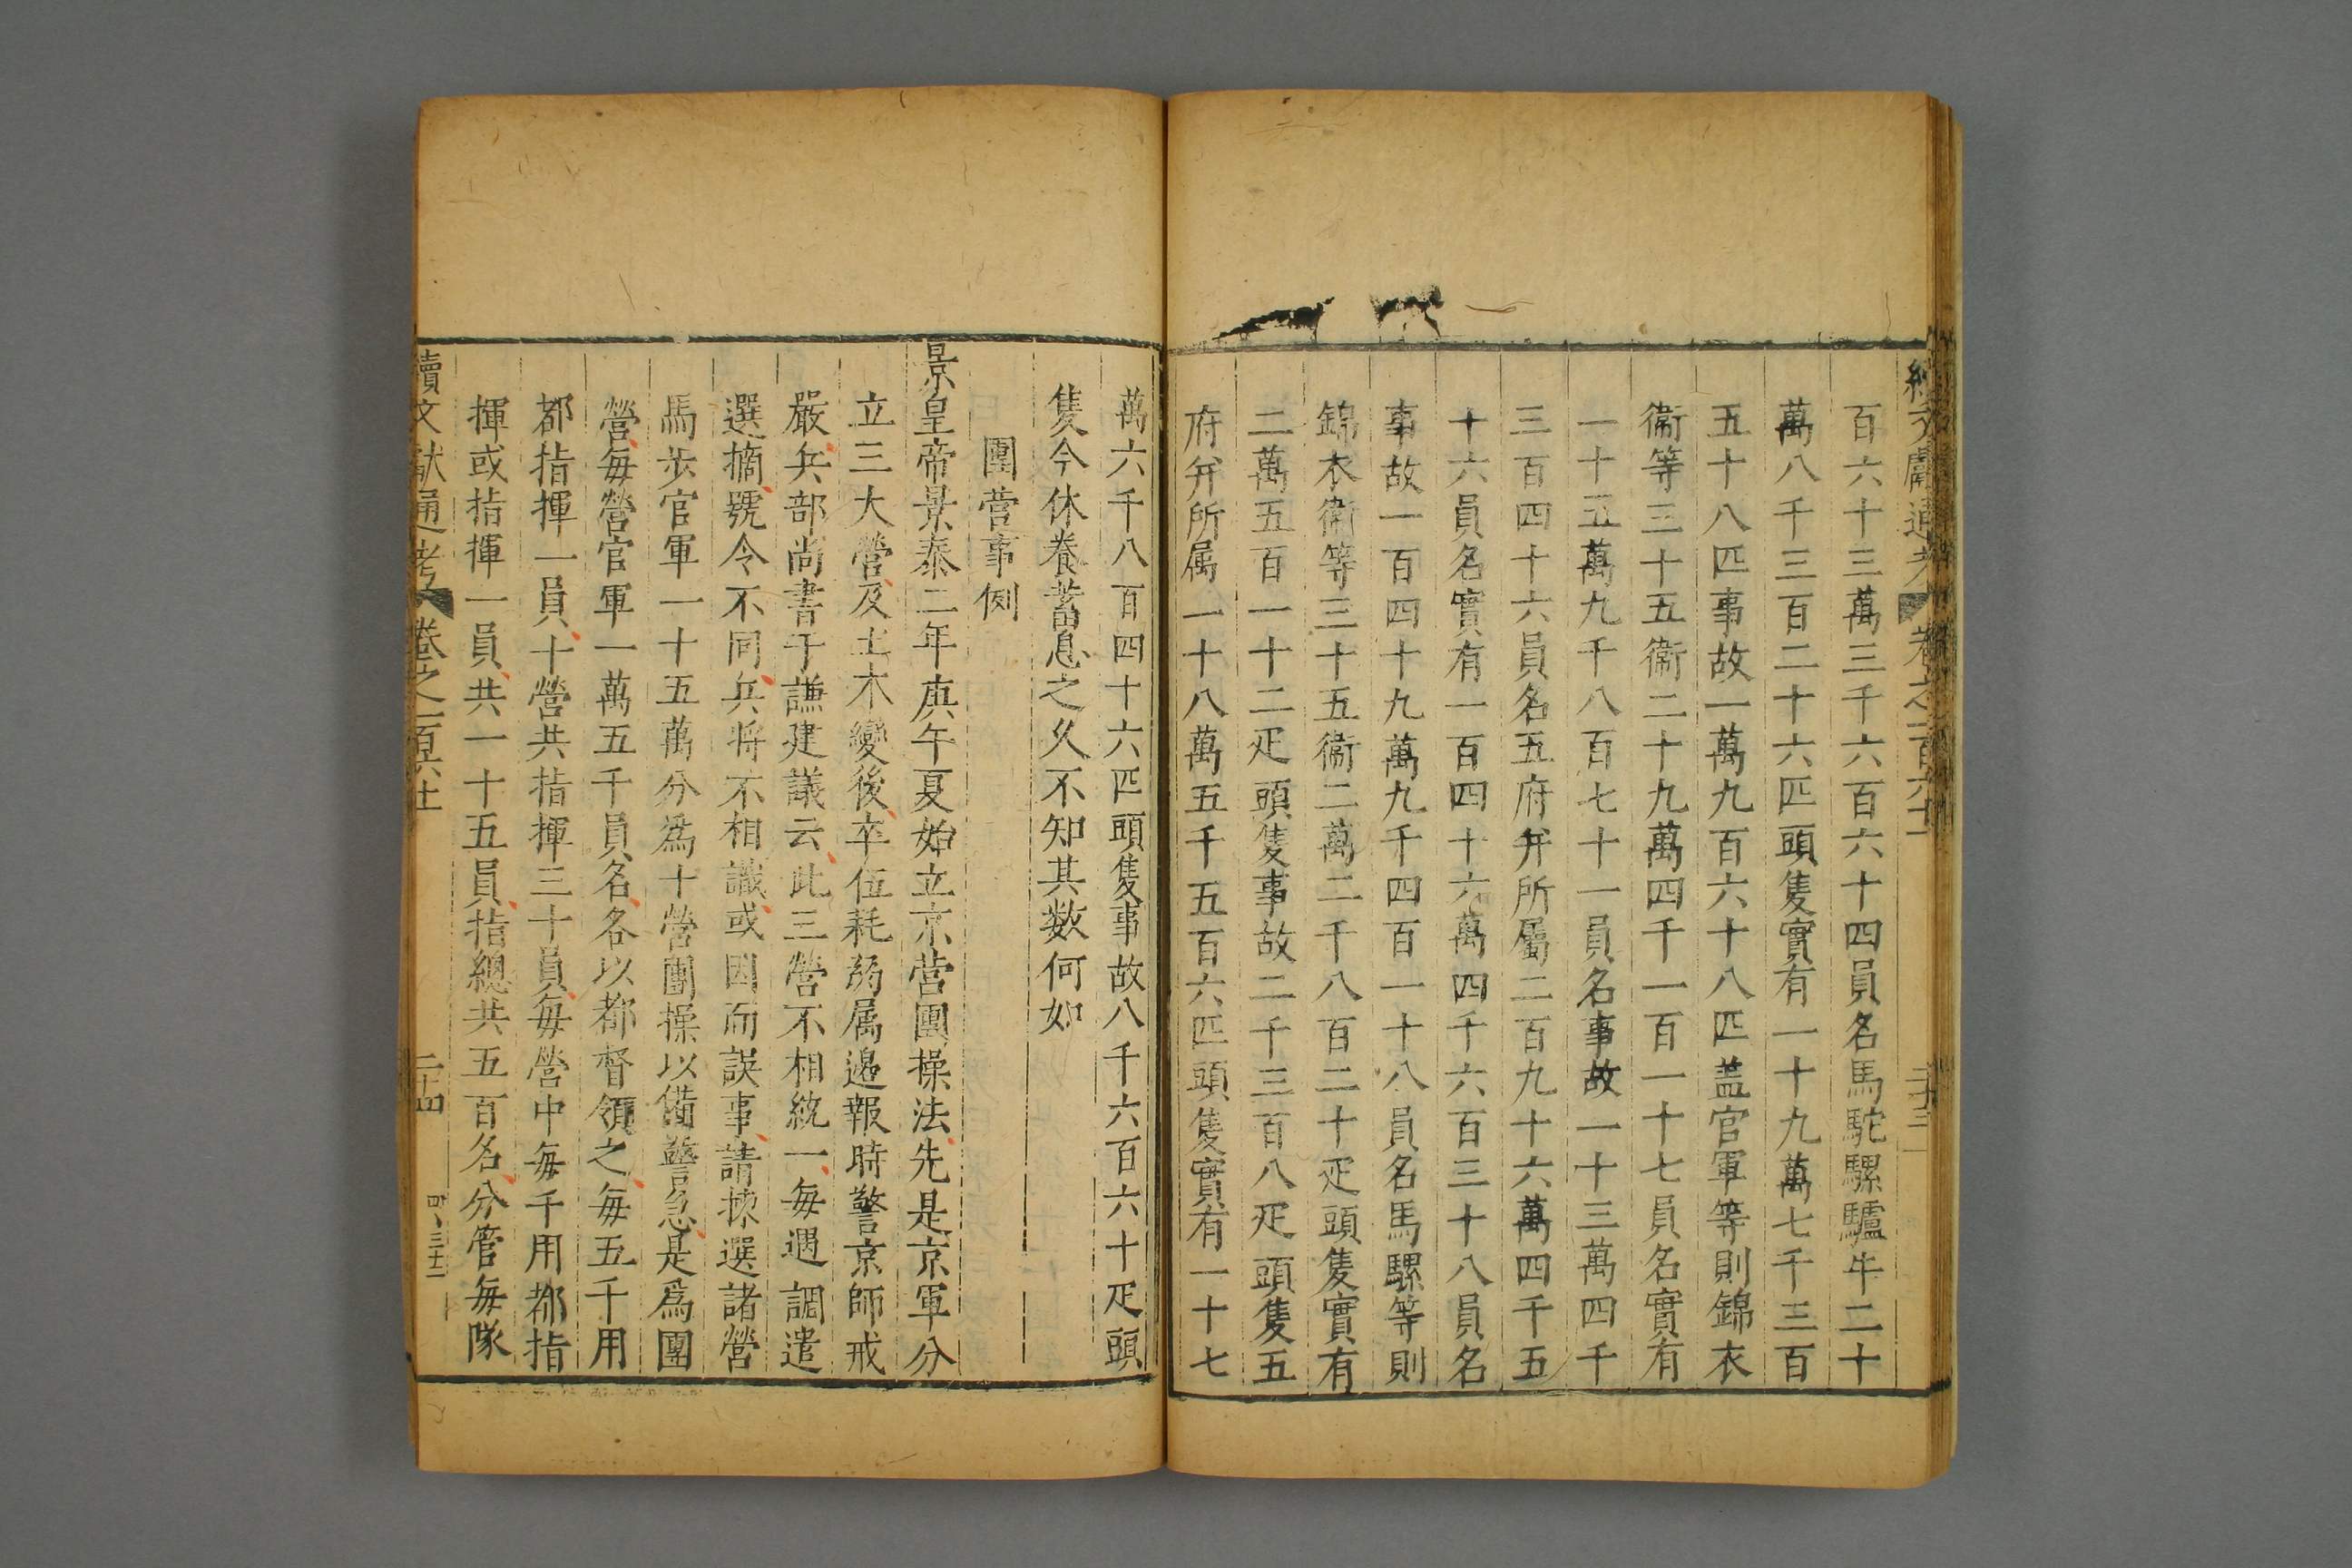 百六十三萬三千六百六十四員名馬駝騾驢牛二十
萬八千三百二十六匹頭隻實有一十九萬七千三百
五十八匹事故一萬九百六十八匹盖官軍等則錦衣
衞等三十五衞二十九萬四千一百一十七員名實有
一十五萬九千八百七十一員名事故一十三萬四千
三百四十六員名五府并所屬二百九十六萬四千五
十六員名實有一百四十六萬四千六百三十八員名
事故一百四十九萬九千四百一十八員名馬騾等則
錦衣衞等三十五衞二萬二千八百二十疋頭隻實有
二萬五百一十二疋頭隻事故二千三百八疋頭隻五
府并所属一十八萬五千五百六匹頭隻實有一十七
萬六千八百四十六匹頭隻事故八千六百六十疋頭
隻今休養蓄息之久不知其数何如
團营事例
景皇帝景泰二年庚午夏始立京营團操法先是京軍分
立三大營及土木變後卒伍耗弱属邉報時警京師戒
嚴兵部尚書于謙建議云此三營不相統一每遇調遣
選摘號令不同兵將不相識或因而誤事請揀選諸營
馬步官軍一十五萬分爲十營團操以備警急是爲團
營每營官軍一萬五千員名各以都督領之每五千用
都指揮一員十營共指揮三十員每營中每千用都指
揮或指揮一員共一十五員指總共五百名分管每隊
續文獻通考 卷之一百六十一 二十四